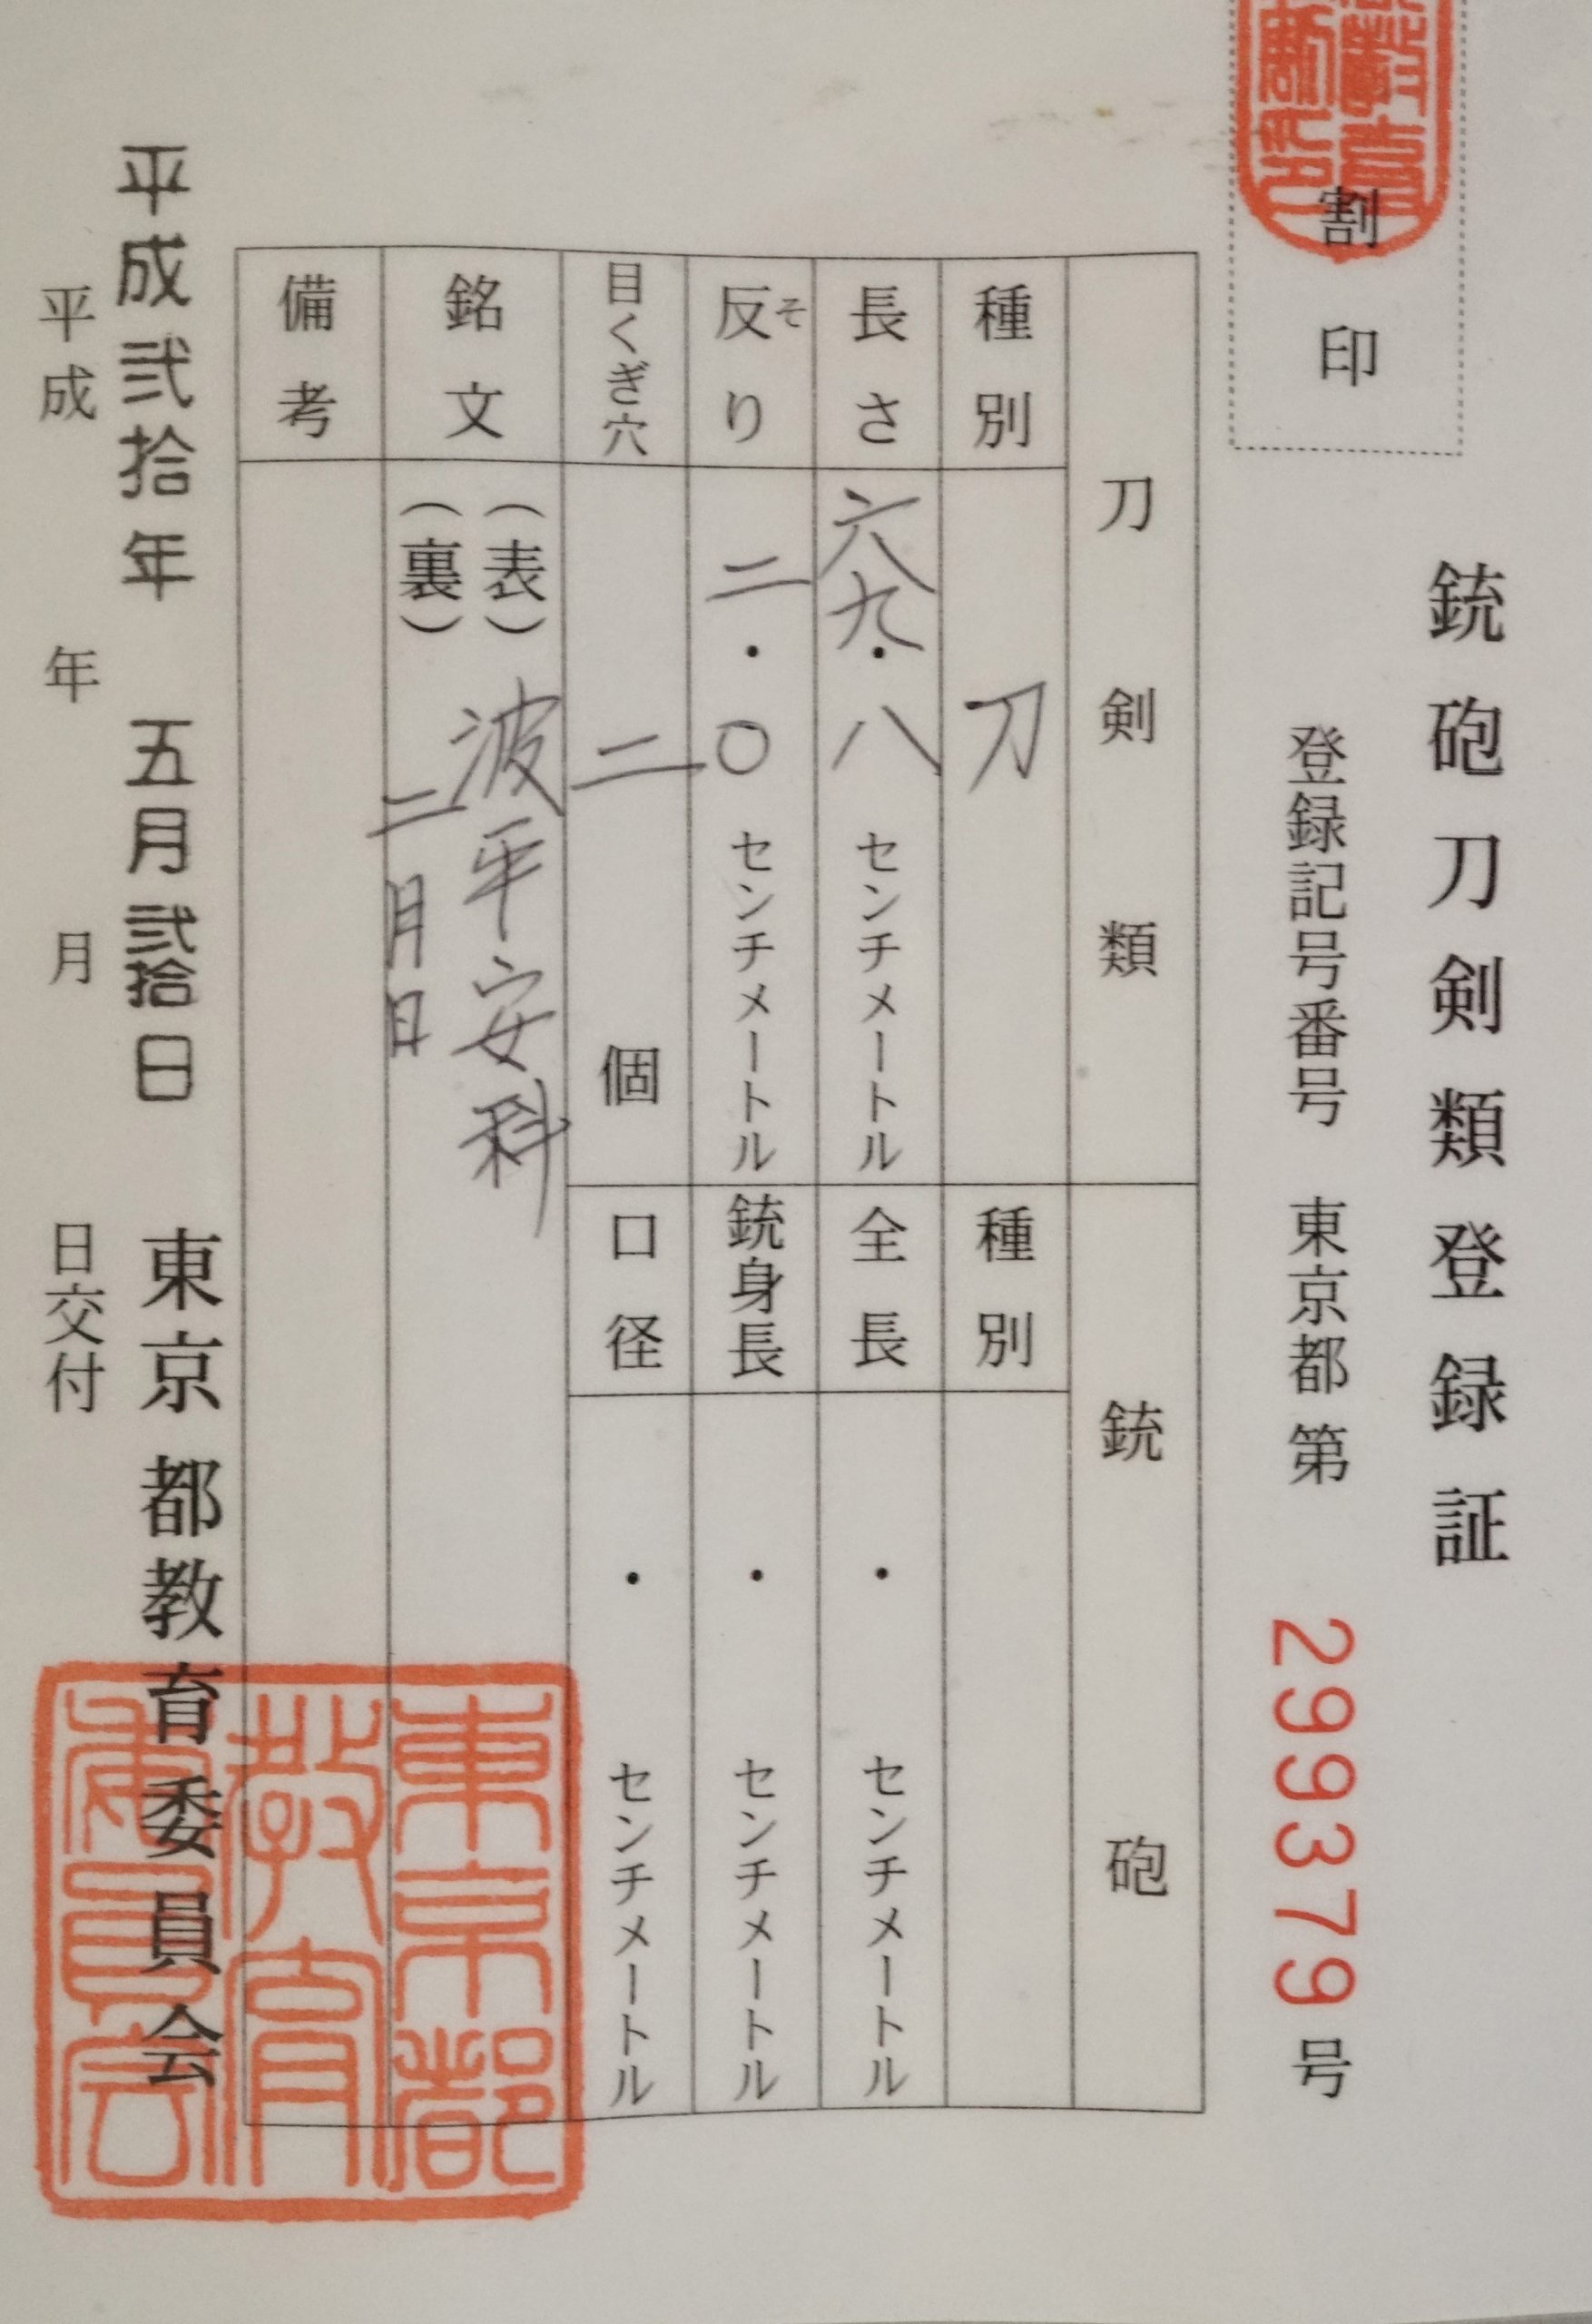 銃砲刀剣類登録証
割印
登録記号番号 東京都 第 299379 号
刀剣類
銃砲
種別 刀
種別
長さ 六九・八 センチメートル
全長 ・ センチメートル
反り 二・〇 センチメートル
そ
銃身長 ・ センチメートル
目くぎ穴 二 個
口径 ・ センチメートル
銘文 (表) 波平安
(裏) 二月日
備考
平成弐拾年 五月弐拾日 東京都教育委員会
平成 年 月 日交付
東京都
教育
委員会